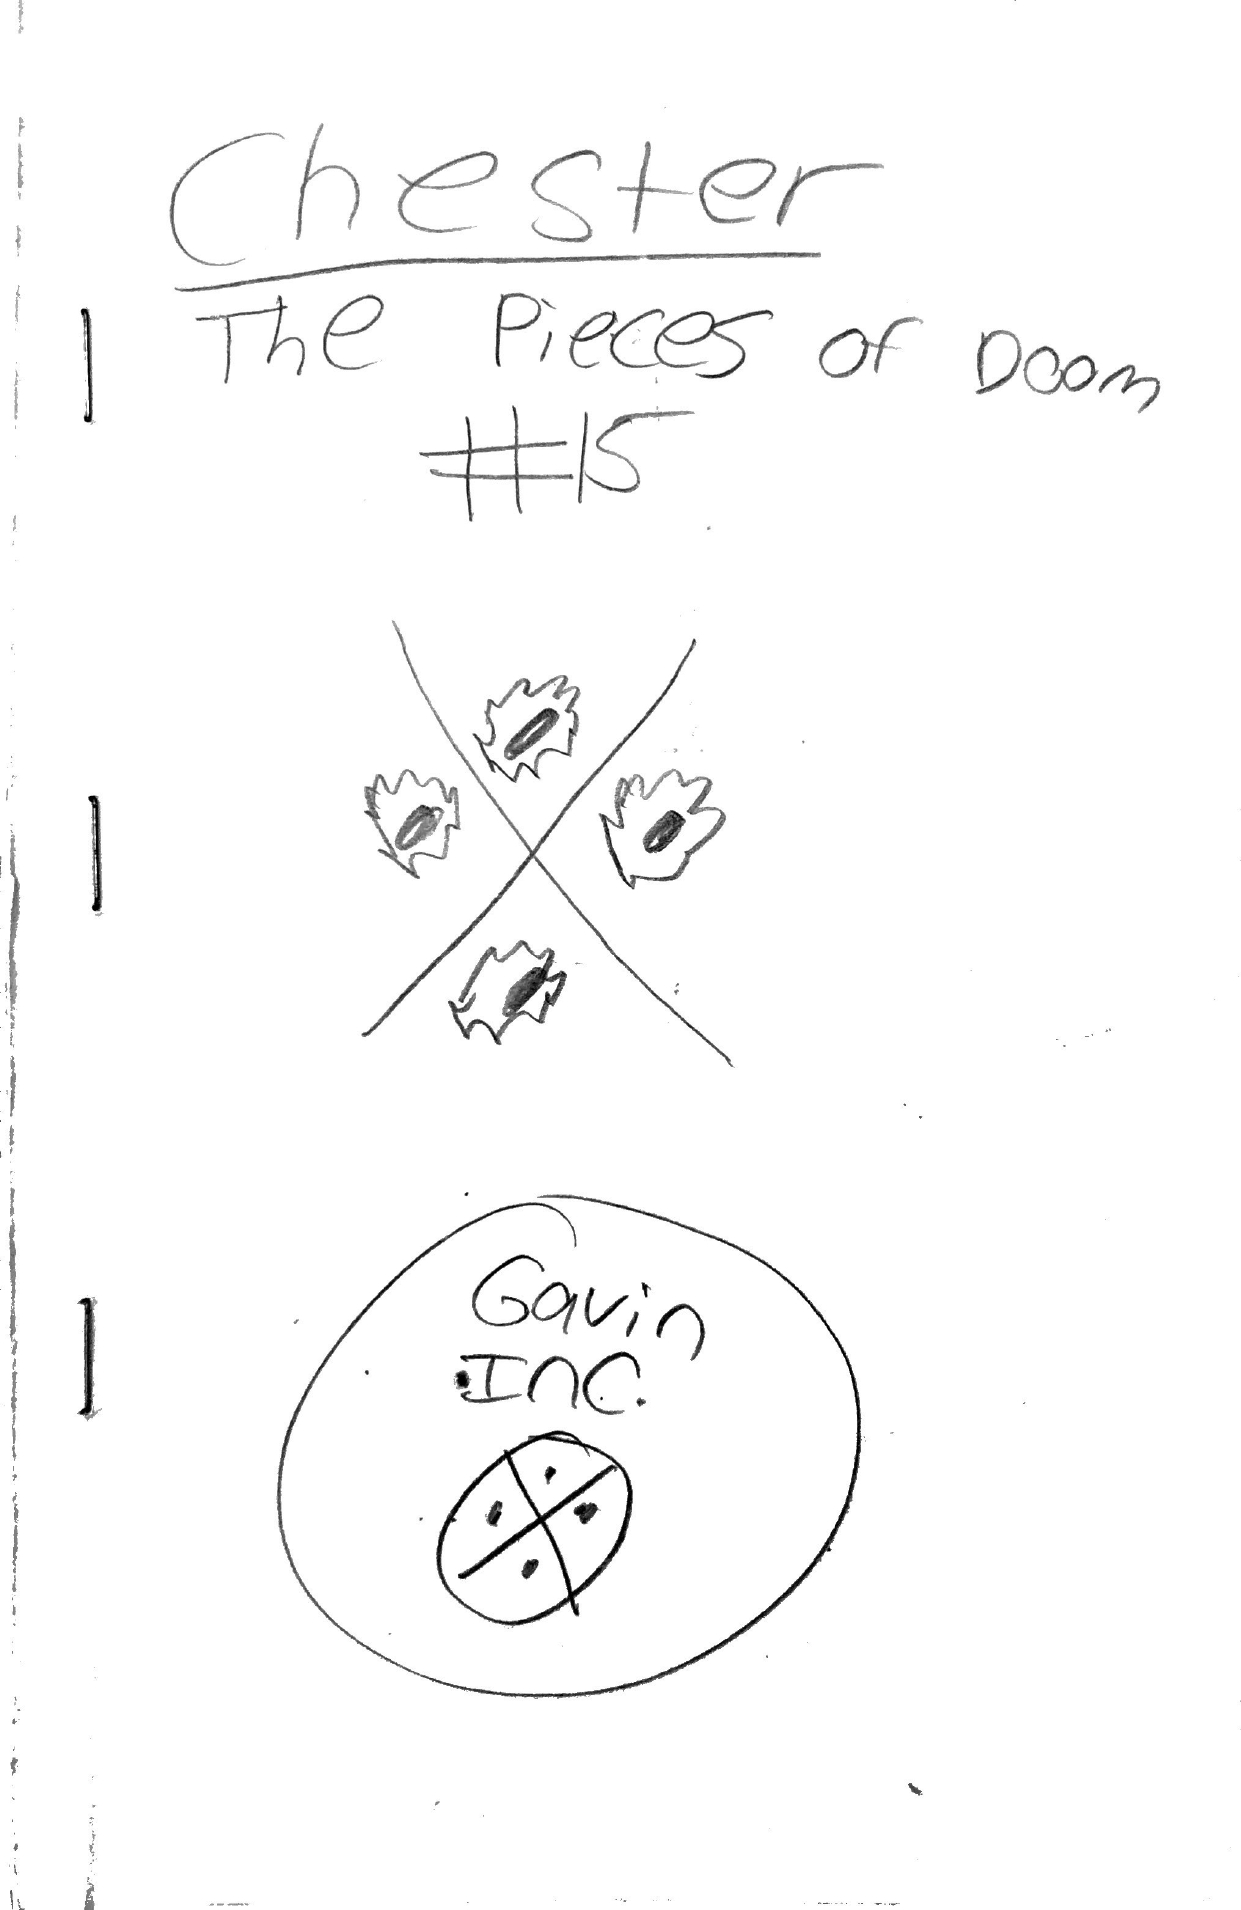 Chester
The Pieces of Doom
#15
Gavin
Inc.